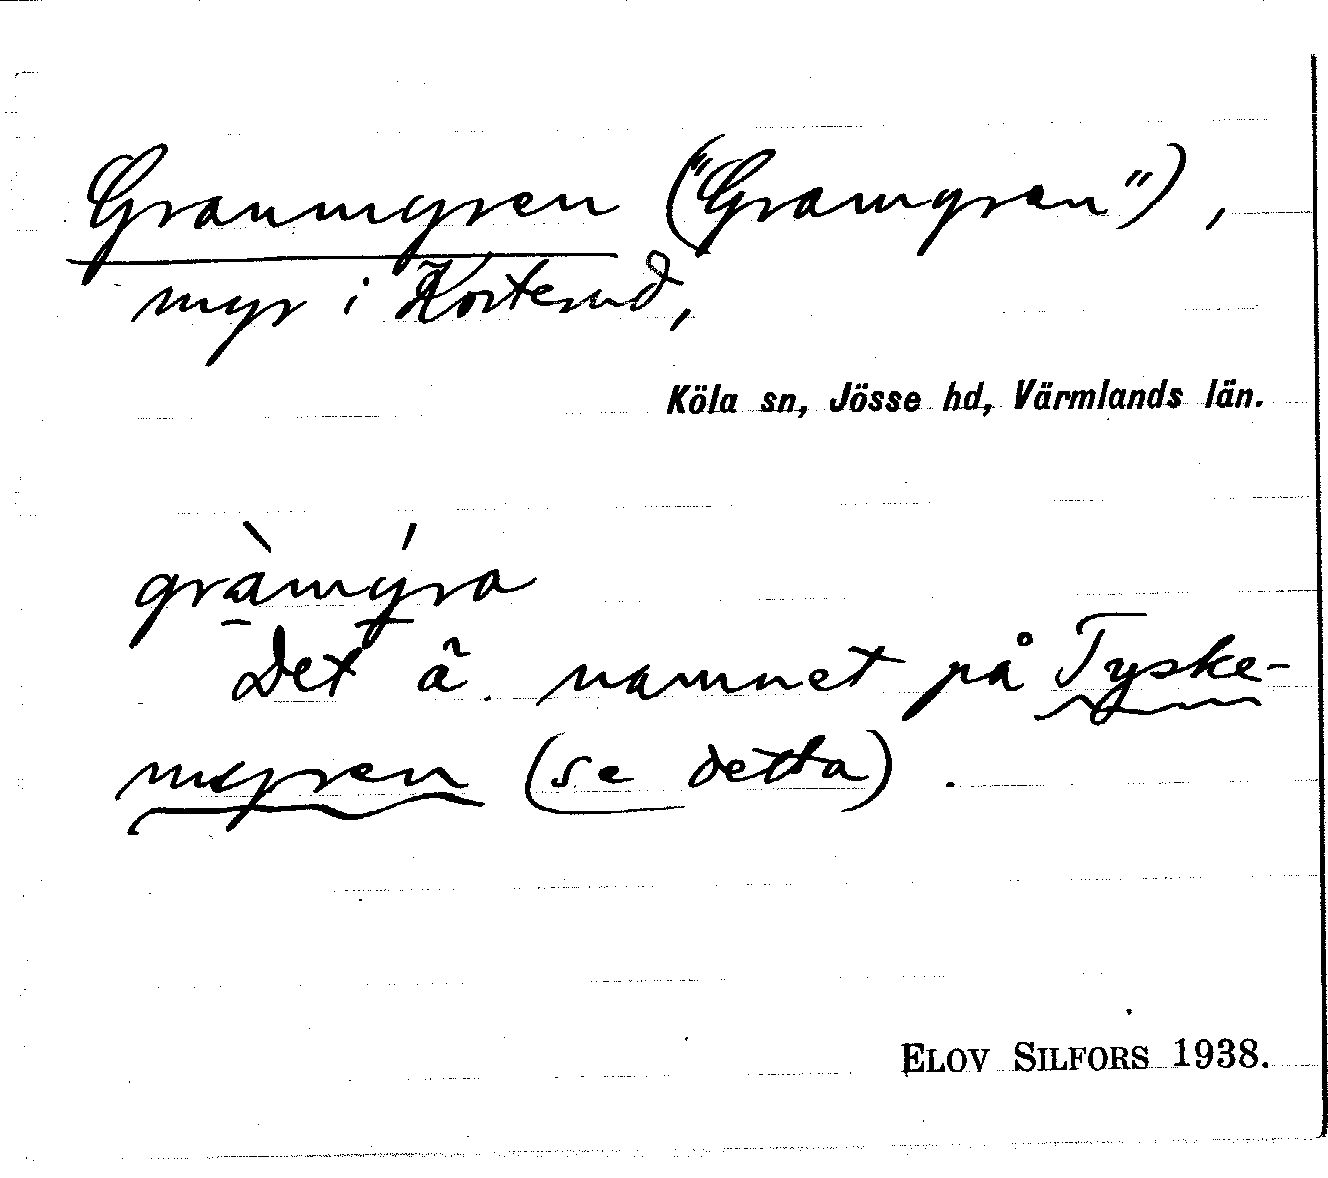 Granmyren ("Gramyren"),
myr i Korterud,
Köla sn, Jösse hd, Värmlands län.
gràmýra
Det ä namnet på Tyske-
myren (se detta).
ELOV SILFORS 1938.